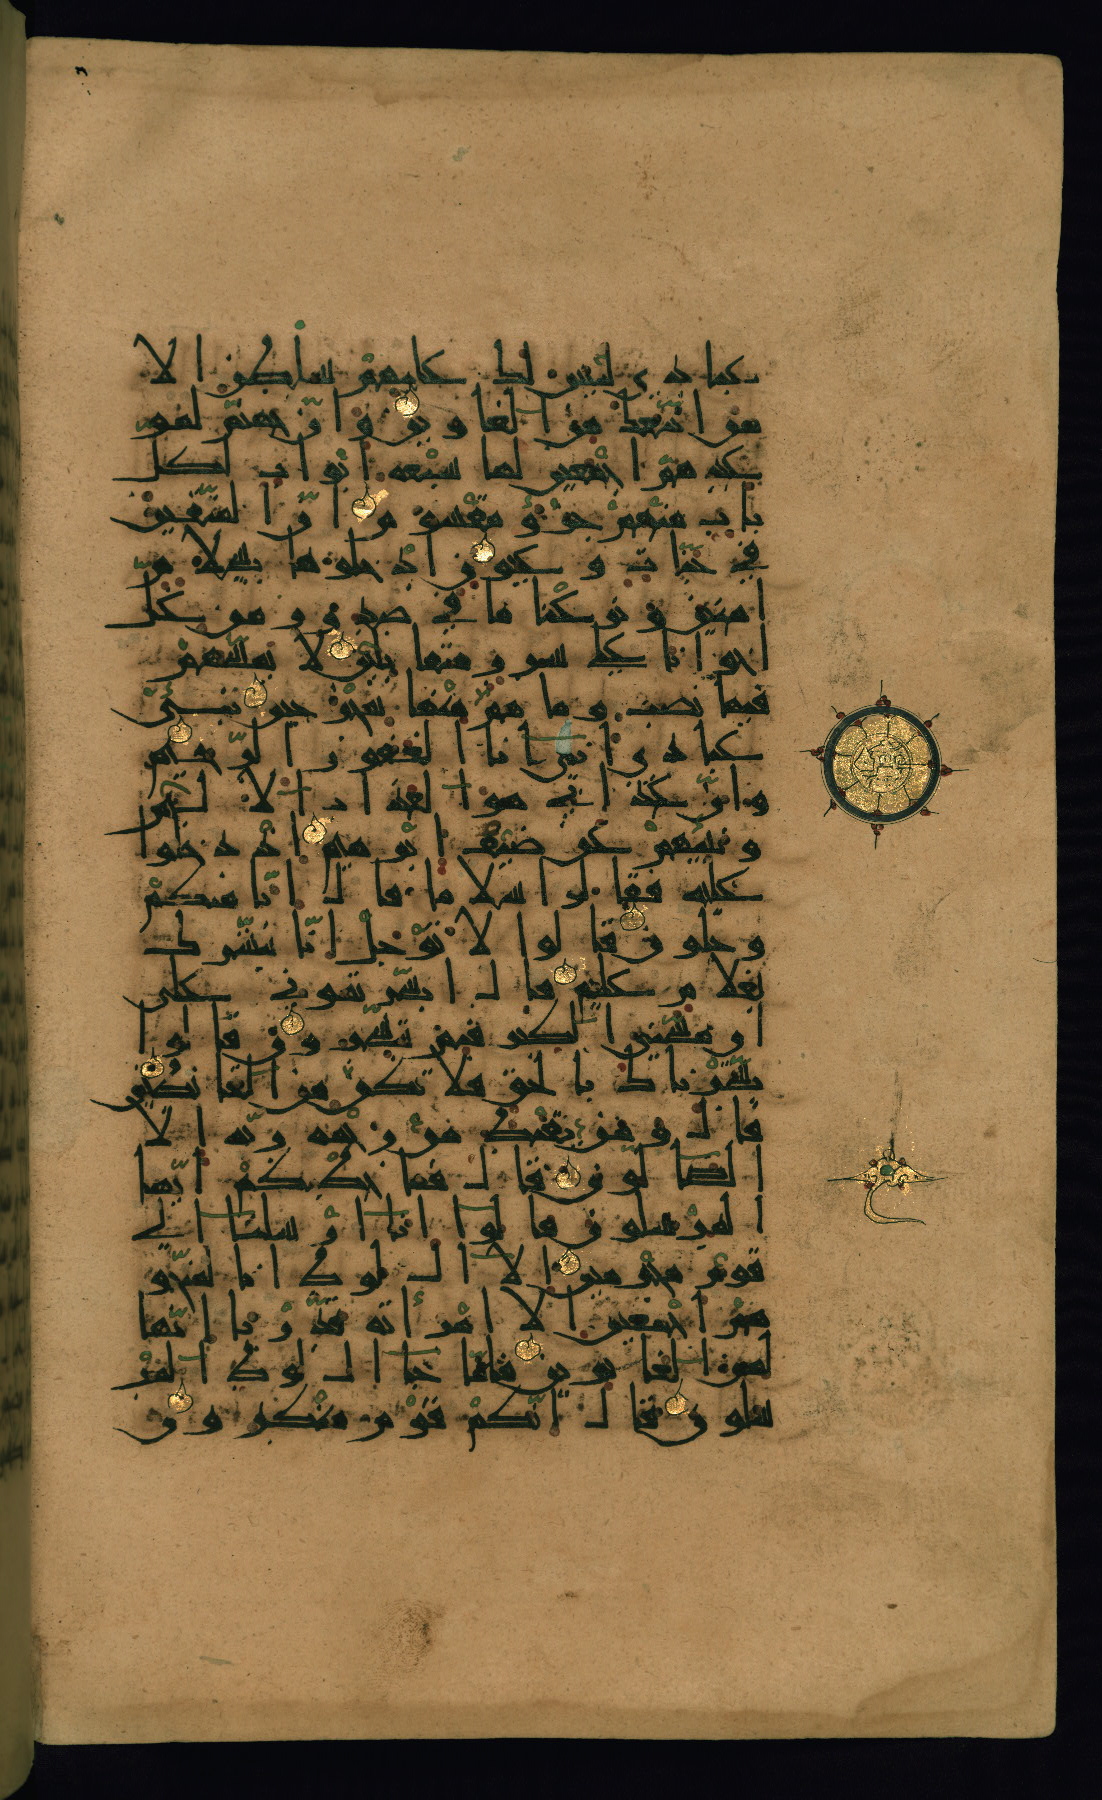 عبادي ليس لك عليهم سلطن الا
من اتبعك من الغاوين وان جهنم لمو
عدهم اجمعين لها سبعة ابواب لكل
باب منهم جزء مقسوم ان المتقين
في جنات وعيون ادخلوها بسلام
امنين ونزعنا ما في صدورهم من غل
اخوانا على سرر متقابلين لا يمسهم
فيها نصب وما هم منها بمخرجين نبئ
عبادي اني انا الغفور الرحيم
وان عذابي هو العذاب الاليم
ونبئهم عن ضيف ابرهيم اذ دخلوا
عليه فقالوا سلاما قال انا منكم
وجلون قالوا لا توجل انا نبشرك
بغلام عليم قال ابشرتموني على
ان مسني الكبر فبم تبشرون قالوا
بشرناك بالحق فلا تكن من القانطين
قال ومن يقنط من رحمة ربه الا
الضالون قال فما خطبكم ايها
المرسلون قالوا انا ارسلنا الى
قوم مجرمين الا ال لوط انا لمنجو
هم اجمعين الا امراته قدرنا انها
لمن الغابرين فلما جا ال لوط المر
سلون قال انكم قوم منكرون